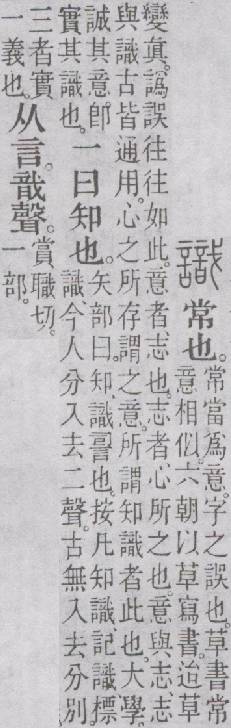 識常也。
常當爲意。字之誤也。草書常
意相似。六朝以草寫書。迨草
變眞。譌誤往往如此。意者、志也。志者、心所之也。意與志、志
與識古皆通用。心之所存謂之意。所謂知識者此也。大學
誠其意。卽
實其識也。
一曰知也。
矢部曰。知、識䛐也。按凡知識、記識、標
識、今人分入去二聲。古無入去分別。
三者實
一義也。
从言。戠聲。
賞職切。
一部。